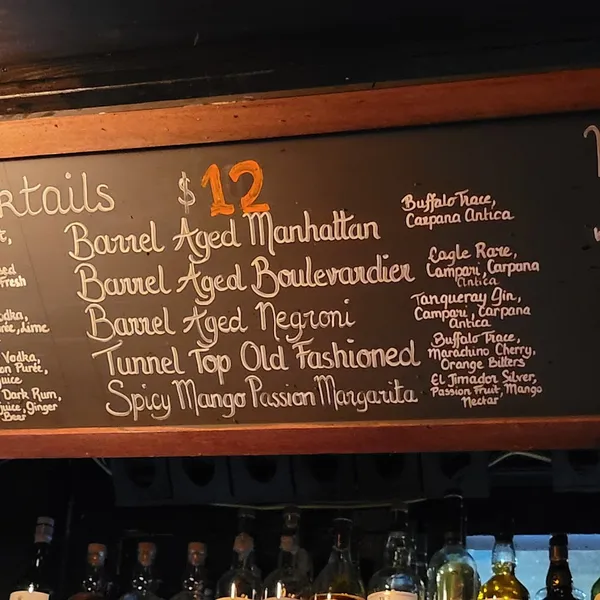 ktails
$12
Barrel Aged Manhattan
Buffalo Trace,
Carpana Antica
Barrel Aged Boulevardier
Eagle Rare,
Campari, Carpana
Antica
Barrel Aged Negroni
Tanqueray Gin,
Campari, Carpana
Antica
Tunnel Top Old Fashioned
Buffalo Trace,
Marachino Cherry,
Orange Bitters
Spicy Mango Passion Margarita
El Jimador Silver,
Passion Fruit, Mango
Nectar
Fresh
Vodka,
Dark Rum,
juice, Ginger
Beer